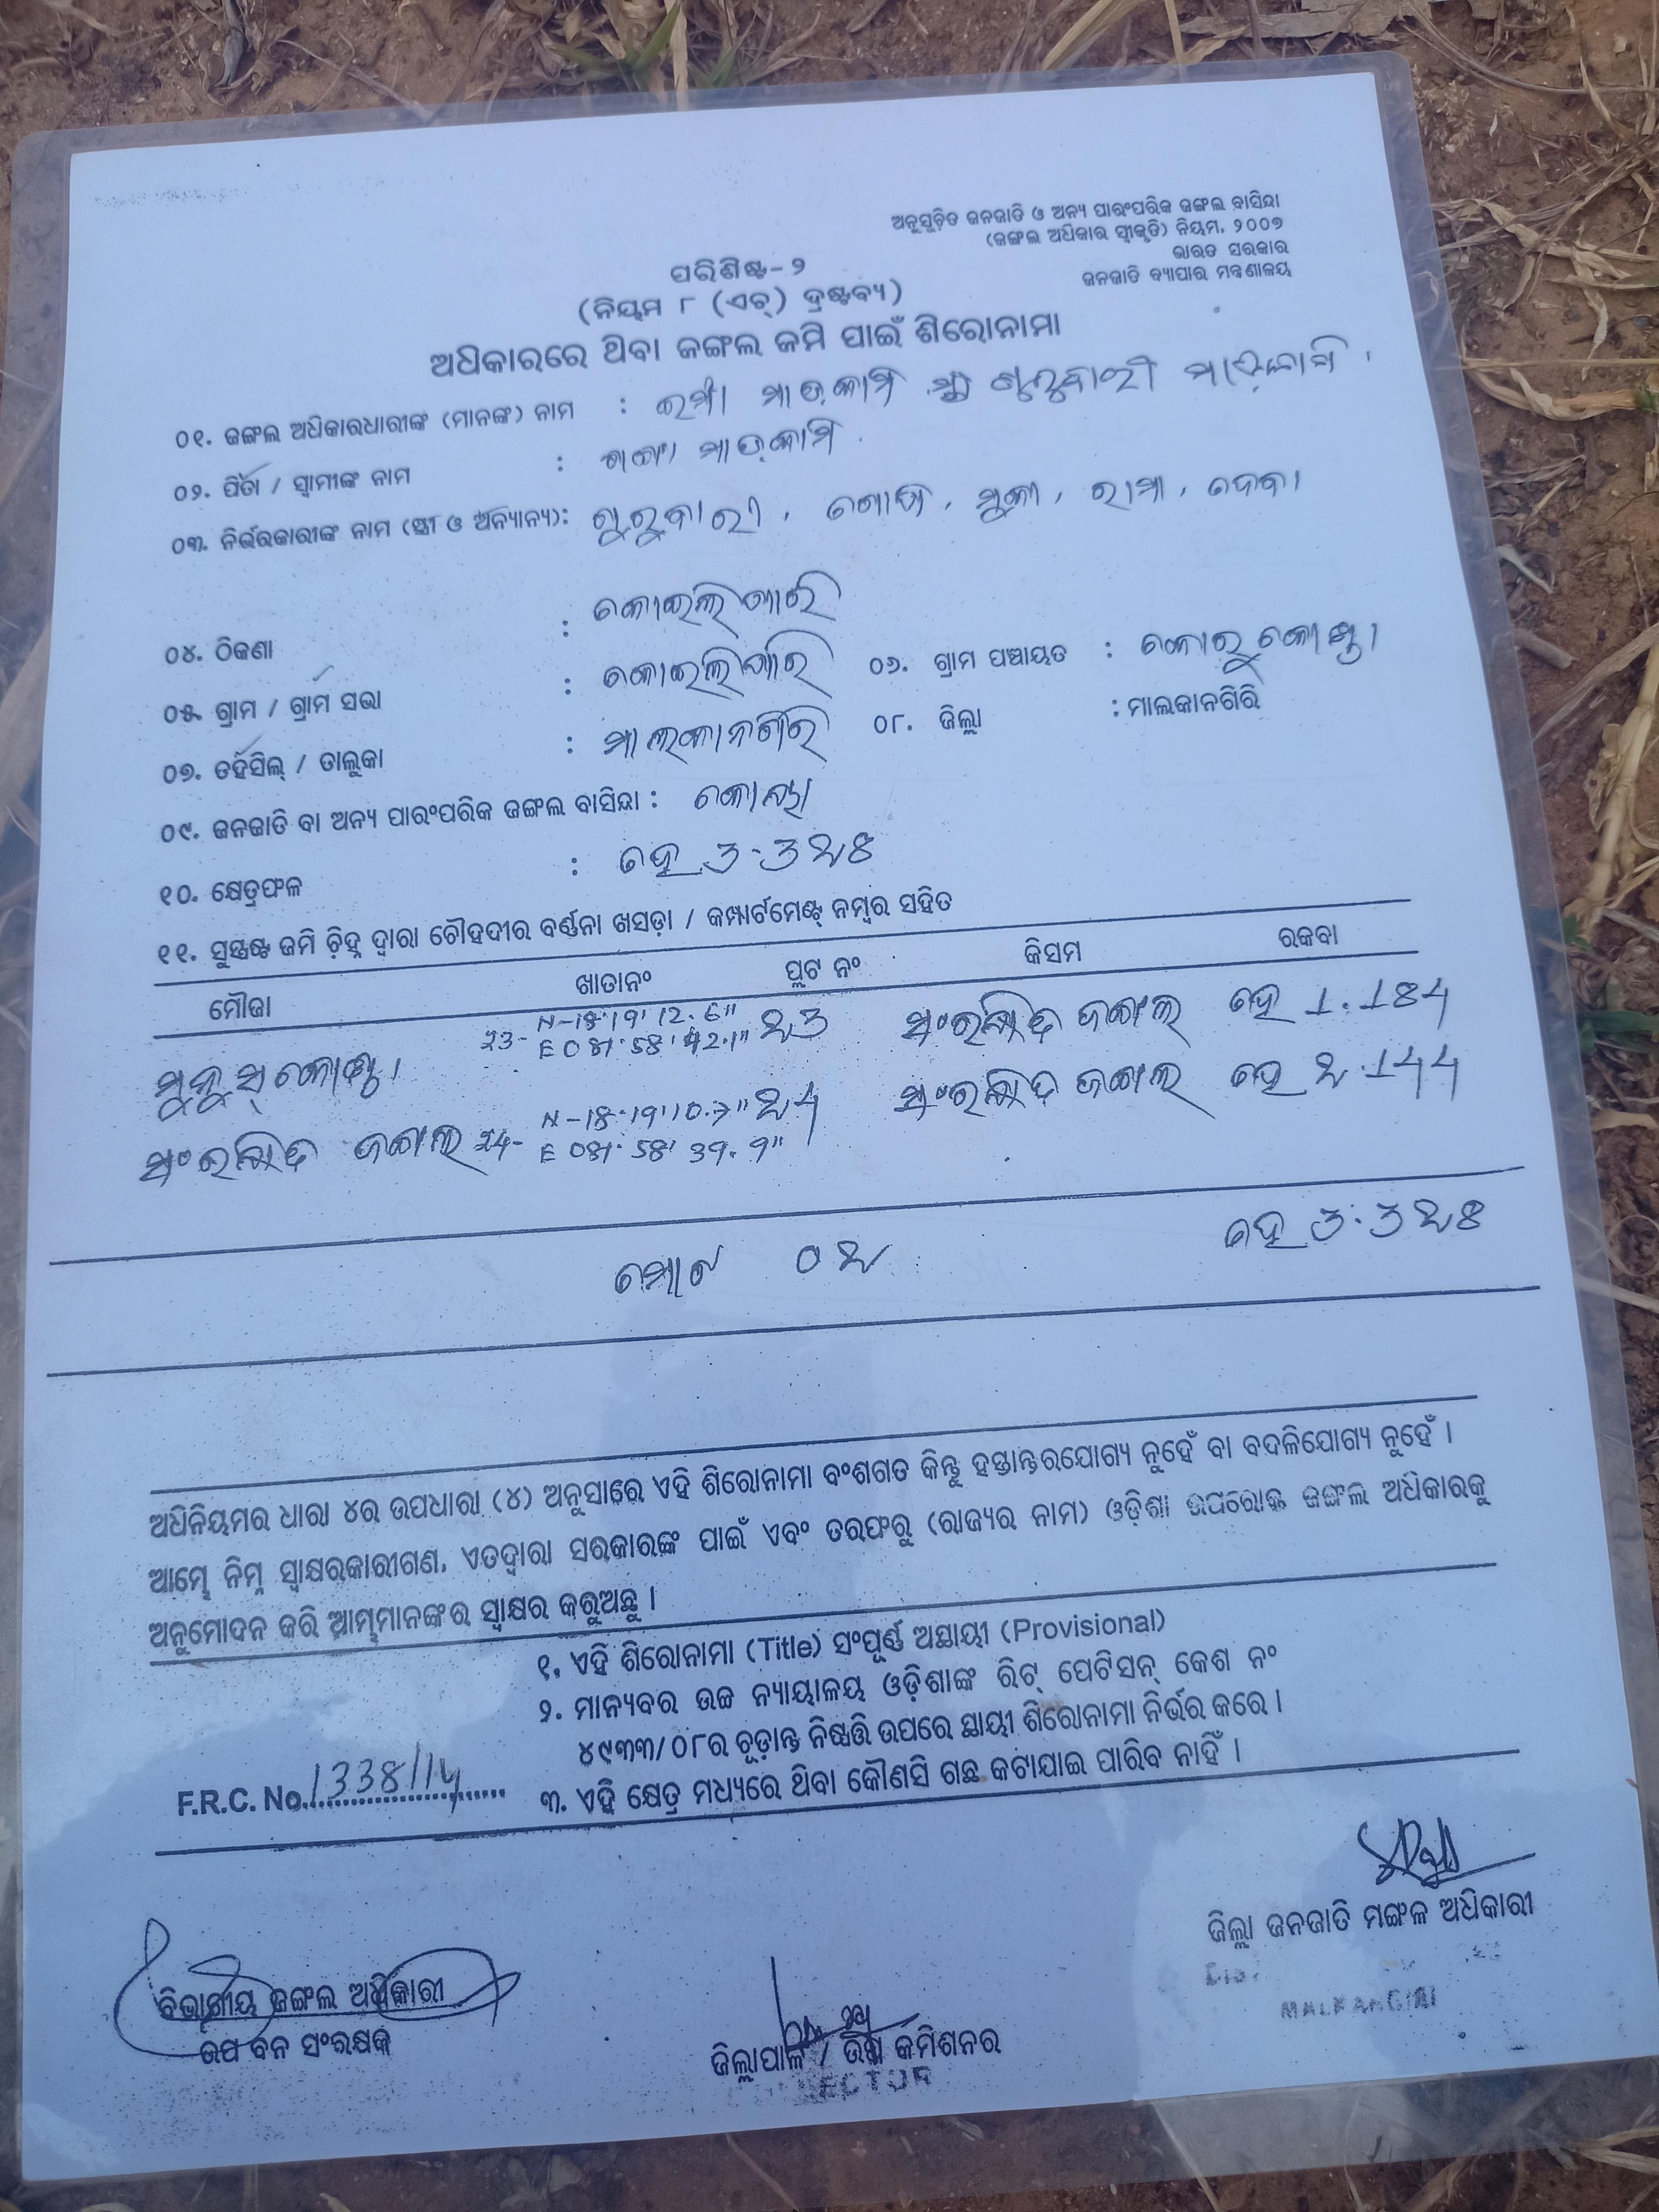 ଅନୁସୂଚିତ ଜନଜାତି ଓ ଅନ୍ୟ ପାରଂପରିକ ଜଙ୍ଗଲ ବାସିନ୍ଦା
(ଜଙ୍ଗଲ ଅଧିକାର ସ୍ୱୀକୃତି) ନିୟମ, ୨୦୦୭
ଭାରତ ସରକାର
ଜନଜାତି ବ୍ୟାପାର ମନ୍ତ୍ରଣାଳୟ
ପରିଶିଷ୍ଟ-୨
(ନିୟମ ୮ (ଏଚ୍) ଦ୍ରଷ୍ଟବ୍ୟ)
ଅଧିକାରରେ ଥିବା ଜଙ୍ଗଲ ଜମି ପାଇଁ ଶିରୋନାମା
୦୧. ଜଙ୍ଗଲ ଅଧିକାରଧାରୀଙ୍କ (ମାନଙ୍କ) ନାମ : ମାଡ଼କାମି ଗୁରୁବାରୀ ମାଡ଼କାମି ।
୦୨. ପିତା / ସ୍ୱାମୀଙ୍କ ନାମ : ମାଡ଼କାମି
୦୩. ନିର୍ଭରକାରୀଙ୍କ ନାମ (ସ୍ତ୍ରୀ ଓ ଅନ୍ୟାନ୍ୟ): ଗୁରୁବାରୀ, ମୁକା, ରାମା, ଦେବା
୦୪. ଠିକଣା : କୋଇଲିଗାରି
୦୫. ଗ୍ରାମ / ଗ୍ରାମ ସଭା : କୋଇଲିଗାରି ୦୬. ଗ୍ରାମ ପଞ୍ଚାୟତ : କୋରୁକୋଣ୍ଡା
୦୭. ତହସିଲ୍ / ତାଲୁକା : ମାଲକାନଗିରି ୦୮. ଜିଲ୍ଲା : ମାଲକାନଗିରି
୦୯. ଜନଜାତି ବା ଅନ୍ୟ ପାରଂପରିକ ଜଙ୍ଗଲ ବାସିନ୍ଦା : କୋୟା
୧୦. କ୍ଷେତ୍ରଫଳ : ହେ 3.328
୧୧. ସୁସ୍ପଷ୍ଟ ଜମି ଚିହ୍ନ ଦ୍ୱାରା ଚୌହଦୀର ବର୍ଣ୍ଣନା ଖସଡ଼ା / କମ୍ପାର୍ଟମେଣ୍ଟ୍ ନମ୍ବର ସହିତ
ମୌଜା ଖାତାନଂ ପ୍ଲଟ ନଂ କିସମ ରକବା
23- N-18°19'12.6" 23 ସଂରକ୍ଷିତ ଜଙ୍ଗଲ ହେ 1.184
E 081°58'42.1"
ସଂରକ୍ଷିତ ଜଙ୍ଗଲ 24- N-18°19'10.7" 24 ସଂରକ୍ଷିତ ଜଙ୍ଗଲ ହେ 2.144
E 081°58'39.9"
ମୋଟ 02 ହେ 3.328
ଅଧିନିୟମର ଧାରା ୪ର ଉପଧାରା (୪) ଅନୁସାରେ ଏହି ଶିରୋନାମା ବଂଶଗତ କିନ୍ତୁ ହସ୍ତାନ୍ତରଯୋଗ୍ୟ ନୁହେଁ ବା ବଦଳିଯୋଗ୍ୟ ନୁହେଁ ।
ଆମ୍ଭେ ନିମ୍ନ ସ୍ୱାକ୍ଷରକାରୀଗଣ, ଏତଦ୍ୱାରା ସରକାରଙ୍କ ପାଇଁ ଏବଂ ତରଫରୁ (ରାଜ୍ୟର ନାମ) ଓଡ଼ିଶା ଉପରୋକ୍ତ ଜଙ୍ଗଲ ଅଧିକାରକୁ
ଅନୁମୋଦନ କରି ଆମ୍ଭମାନଙ୍କର ସ୍ୱାକ୍ଷର କରୁଅଛୁ ।
୧. ଏହି ଶିରୋନାମା (Title) ସଂପୂର୍ଣ୍ଣ ଅସ୍ଥାୟୀ (Provisional)
୨. ମାନ୍ୟବର ଉଚ୍ଚ ନ୍ୟାୟାଳୟ ଓଡ଼ିଶାଙ୍କ ରିଟ୍ ପେଟିସନ୍ କେଶ ନଂ
୪୯୩୩/୦୮ର ଚୂଡ଼ାନ୍ତ ନିଷ୍ପତ୍ତି ଉପରେ ସ୍ଥାୟୀ ଶିରୋନାମା ନିର୍ଭର କରେ ।
F.R.C. No. 1338/14 ୩. ଏହି କ୍ଷେତ୍ର ମଧ୍ୟରେ ଥିବା କୌଣସି ଗଛ କଟାଯାଇ ପାରିବ ନାହିଁ ।
ଜିଲ୍ଲା ଜନଜାତି ମଙ୍ଗଳ ଅଧିକାରୀ
MALKANGIRI
ବିଭାଗୀୟ ଜଙ୍ଗଲ ଅଧିକାରୀ
ଉପ ବନ ସଂରକ୍ଷକ
ଜିଲ୍ଲାପାଳ / ଡିପୁଟି କମିଶନର